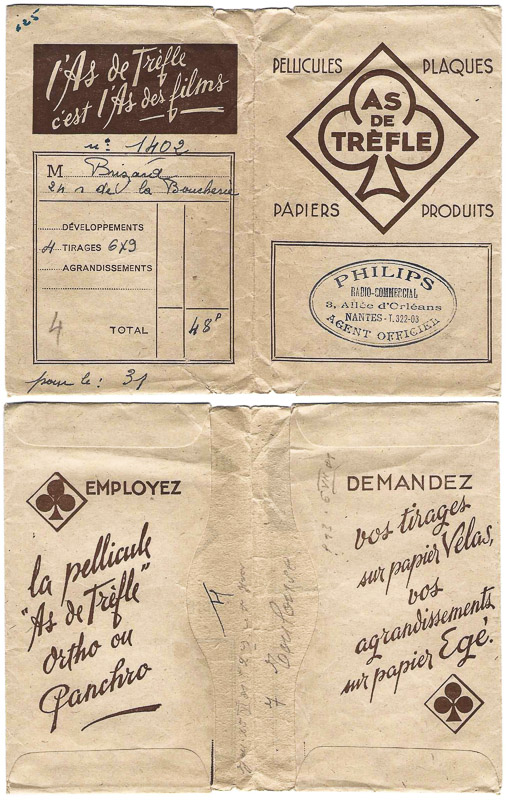 625
l'As de Trèfle
c'est l'As des films
n°: 1402
M Brizard
24 r de la Boucherie
DÉVELOPPEMENTS
4 TIRAGES 6x9
AGRANDISSEMENTS
4
TOTAL 48F
pour le: 31
PELLICULES PLAQUES
AS
DE
TRÈFLE
PAPIERS PRODUITS
PHILIPS
RADIO-COMMERCIAL
3, Allée d'Orléans
NANTES - T. 322-03
AGENT OFFICIEL
EMPLOYEZ
la pellicule
"As de Trèfle"
Ortho ou
Panchro
4
DEMANDEZ
vos tirages
sur papier Velas,
vos
agrandissements
sur papier Egé.